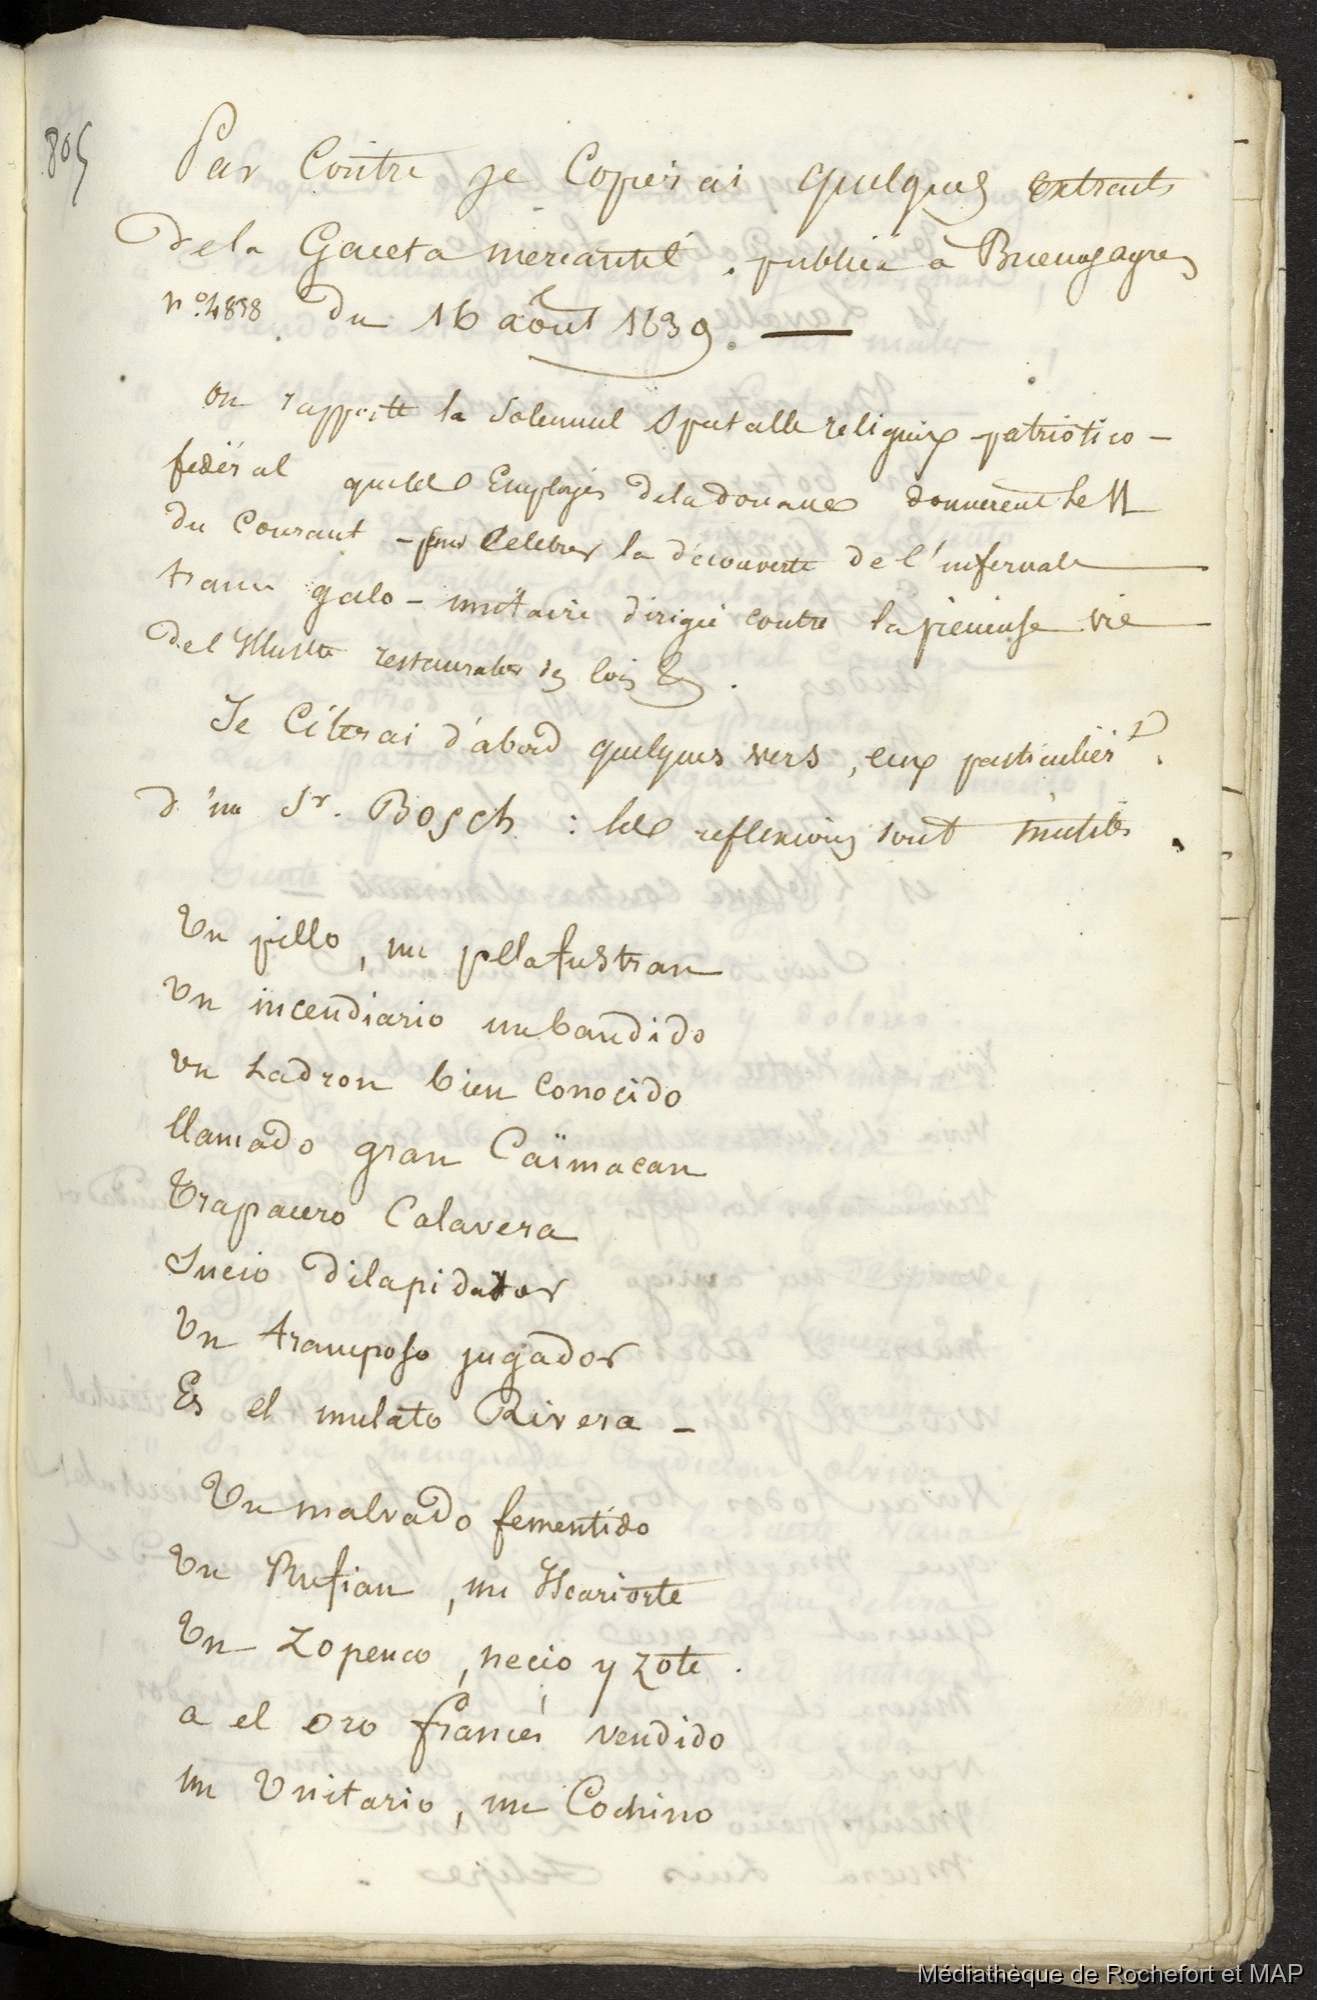 805
Par Contre je Copierai quelques extraits
de la Gaceta mercantil. publiée à Buenosayres
n.º 4838 du 16 août 1839. —
on rapporte la solennel Spectacle religieux-patriotico-
fédéral que les Employés de la douane donnerent le 11
du Courant - pour Celebrer la découverte de l'infernale
trame galo-unitaire dirigée contre la précieuse vie
del Illustre restaurador des lois &.
Je Citerai d'abord quelques vers, ceux particulier.t
d'un Sr. Bosch : les reflexions sont inutiles.
Un pillo, un pllafustran
Un incendiario un bandido
un Ladron bien conocido
llamado gran Caïmacan
Trapacero Calavera
Sucio dilapidador
Un tramposo jugador
Es el mulato Rivera -
Un malvado fementido
Un Rufian, un Iscariorte
Un Zopenco, necio y zote.
a el oro francés vendido
un Unitario, un Cochino
Médiathèque de Rochefort et MAP